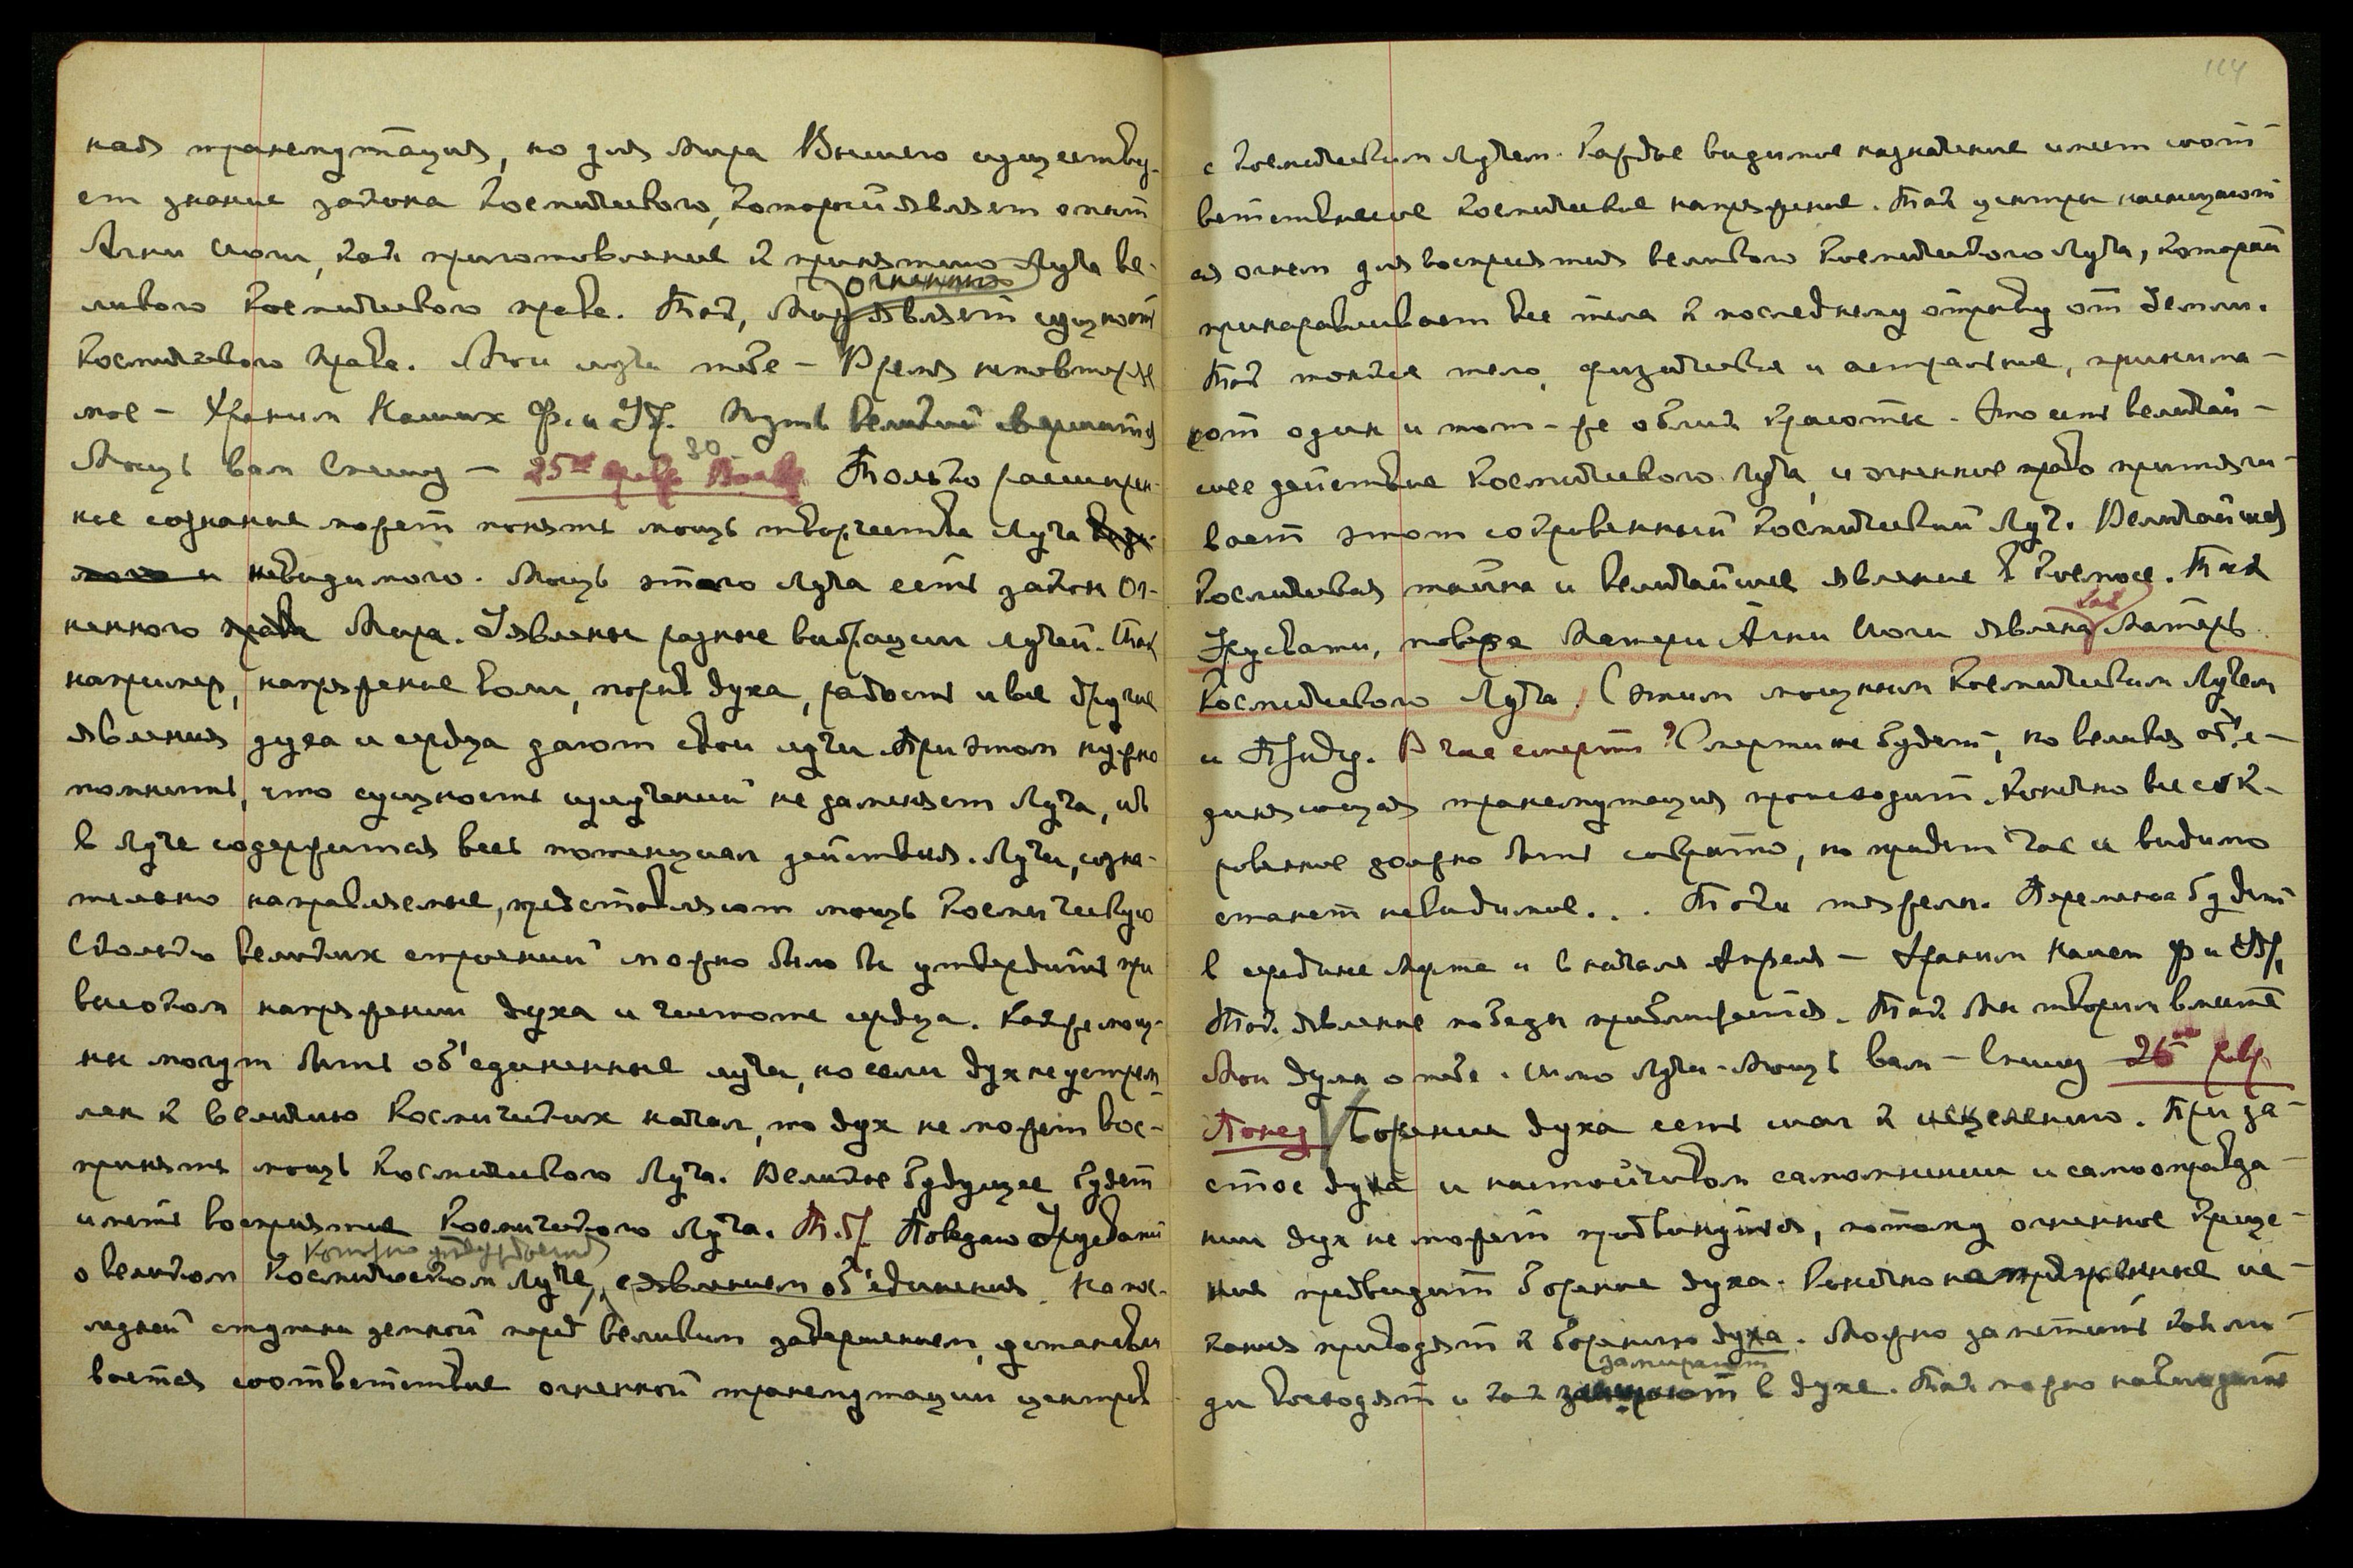 ная трансмутация, но для Мира Высшего существу-
ет знание закона Космического, который являет опыт
Агни Йоги, как приготовление к принятию Луча ве-
огненно
ликого Космического права. Так, Мир являет сущность
Космического Права. Мои лучи тебе – Время неповторяе
мое – Храним Наших Ф. и Ур. Путь великий вершится
30
Мощь вам Спешу – 25ое февр Воскр Только расширен-
ное сознание может понять мощь творчества Луча види-
мого и невидимого. Мощь этого Луча есть закон Ог-
ненного права Мира. Явлены разные вибрации лучей. Так
например, напряжение воли, порыв духа, радость и все другие
явления духа и сердца дают свои лучи. При этом нужно
помнить, что сущность излучений не заменяет Луча, ибо
в Луче содержится весь потенциал действия. Лучи, созна-
тельно направляемые, представляют мощь Космическую
Сколько великих строений можно было бы утвердить при
высоком напряжении духа и чистоте сердца. Как же мощ-
ны могут быть об'единенные лучи, но если дух не устрем
лен к величию Космических начал, то дух не может вос-
принять мощь Космического Луча. Великое будущее будет
иметь восприятие Космического Луча. Т.Ур. Поведаю Урусвати
которым утверждается
о великом Космическом Луче, с явлением об'единения. На пос-
ледней ступени земной перед великим завершением устанавли
вается соответствие огненной трансмутации центров
114
с Космическим Лучем. Каждое видимое назначение имеет соот-
ветственное Космическое напряжение. Так центры насыщают
ся огнем для восприятия великого Космического Луча, который
принаравливает все тела к последнему отрыву от Земли.
Так тонкое тело, физическое и астральное, принима-
ют один и тот-же облик красоты. Это есть величай-
шее действие Космического Луча, и огненное право притяги-
вает этот сокровенный Космический Луч. Величайшая
Космическая тайна и величайшее явление в Космосе. Так
как
Урусвати, тоже Матери Агни Йоги явлена Матерь
Космического Луча. С этим мощным Космическим Лучем
и Я Приду. В час смерти? Смерти не будет, но великая об'е-
диняющая трансмутация происходит. Конечно все сок-
ровенное должно быть сокрыто, но придет час и видимо
станет невидимое... Токи тяжелы. Перемена будет
в середине Марта и в начале Апреля – Храним Наших Ф и Ур,
Так явление победы приближается. Так Мы творим вместе
Мои думы о тебе. Шлю Лучи – Мощь вам – Спешу 26ое февр
Понед Борение духа есть шаг к исцелению. При за-
стое духа и настойчивом самомнении и самооправда-
нии дух не может продвинуться, потому огненное Креще-
ние предвидит борение духа. Конечно напряженные ис-
кания приводят к борению духа. Можно заметить как лю-
замирают
ди восходят и как в духе. Так можно наблюдать